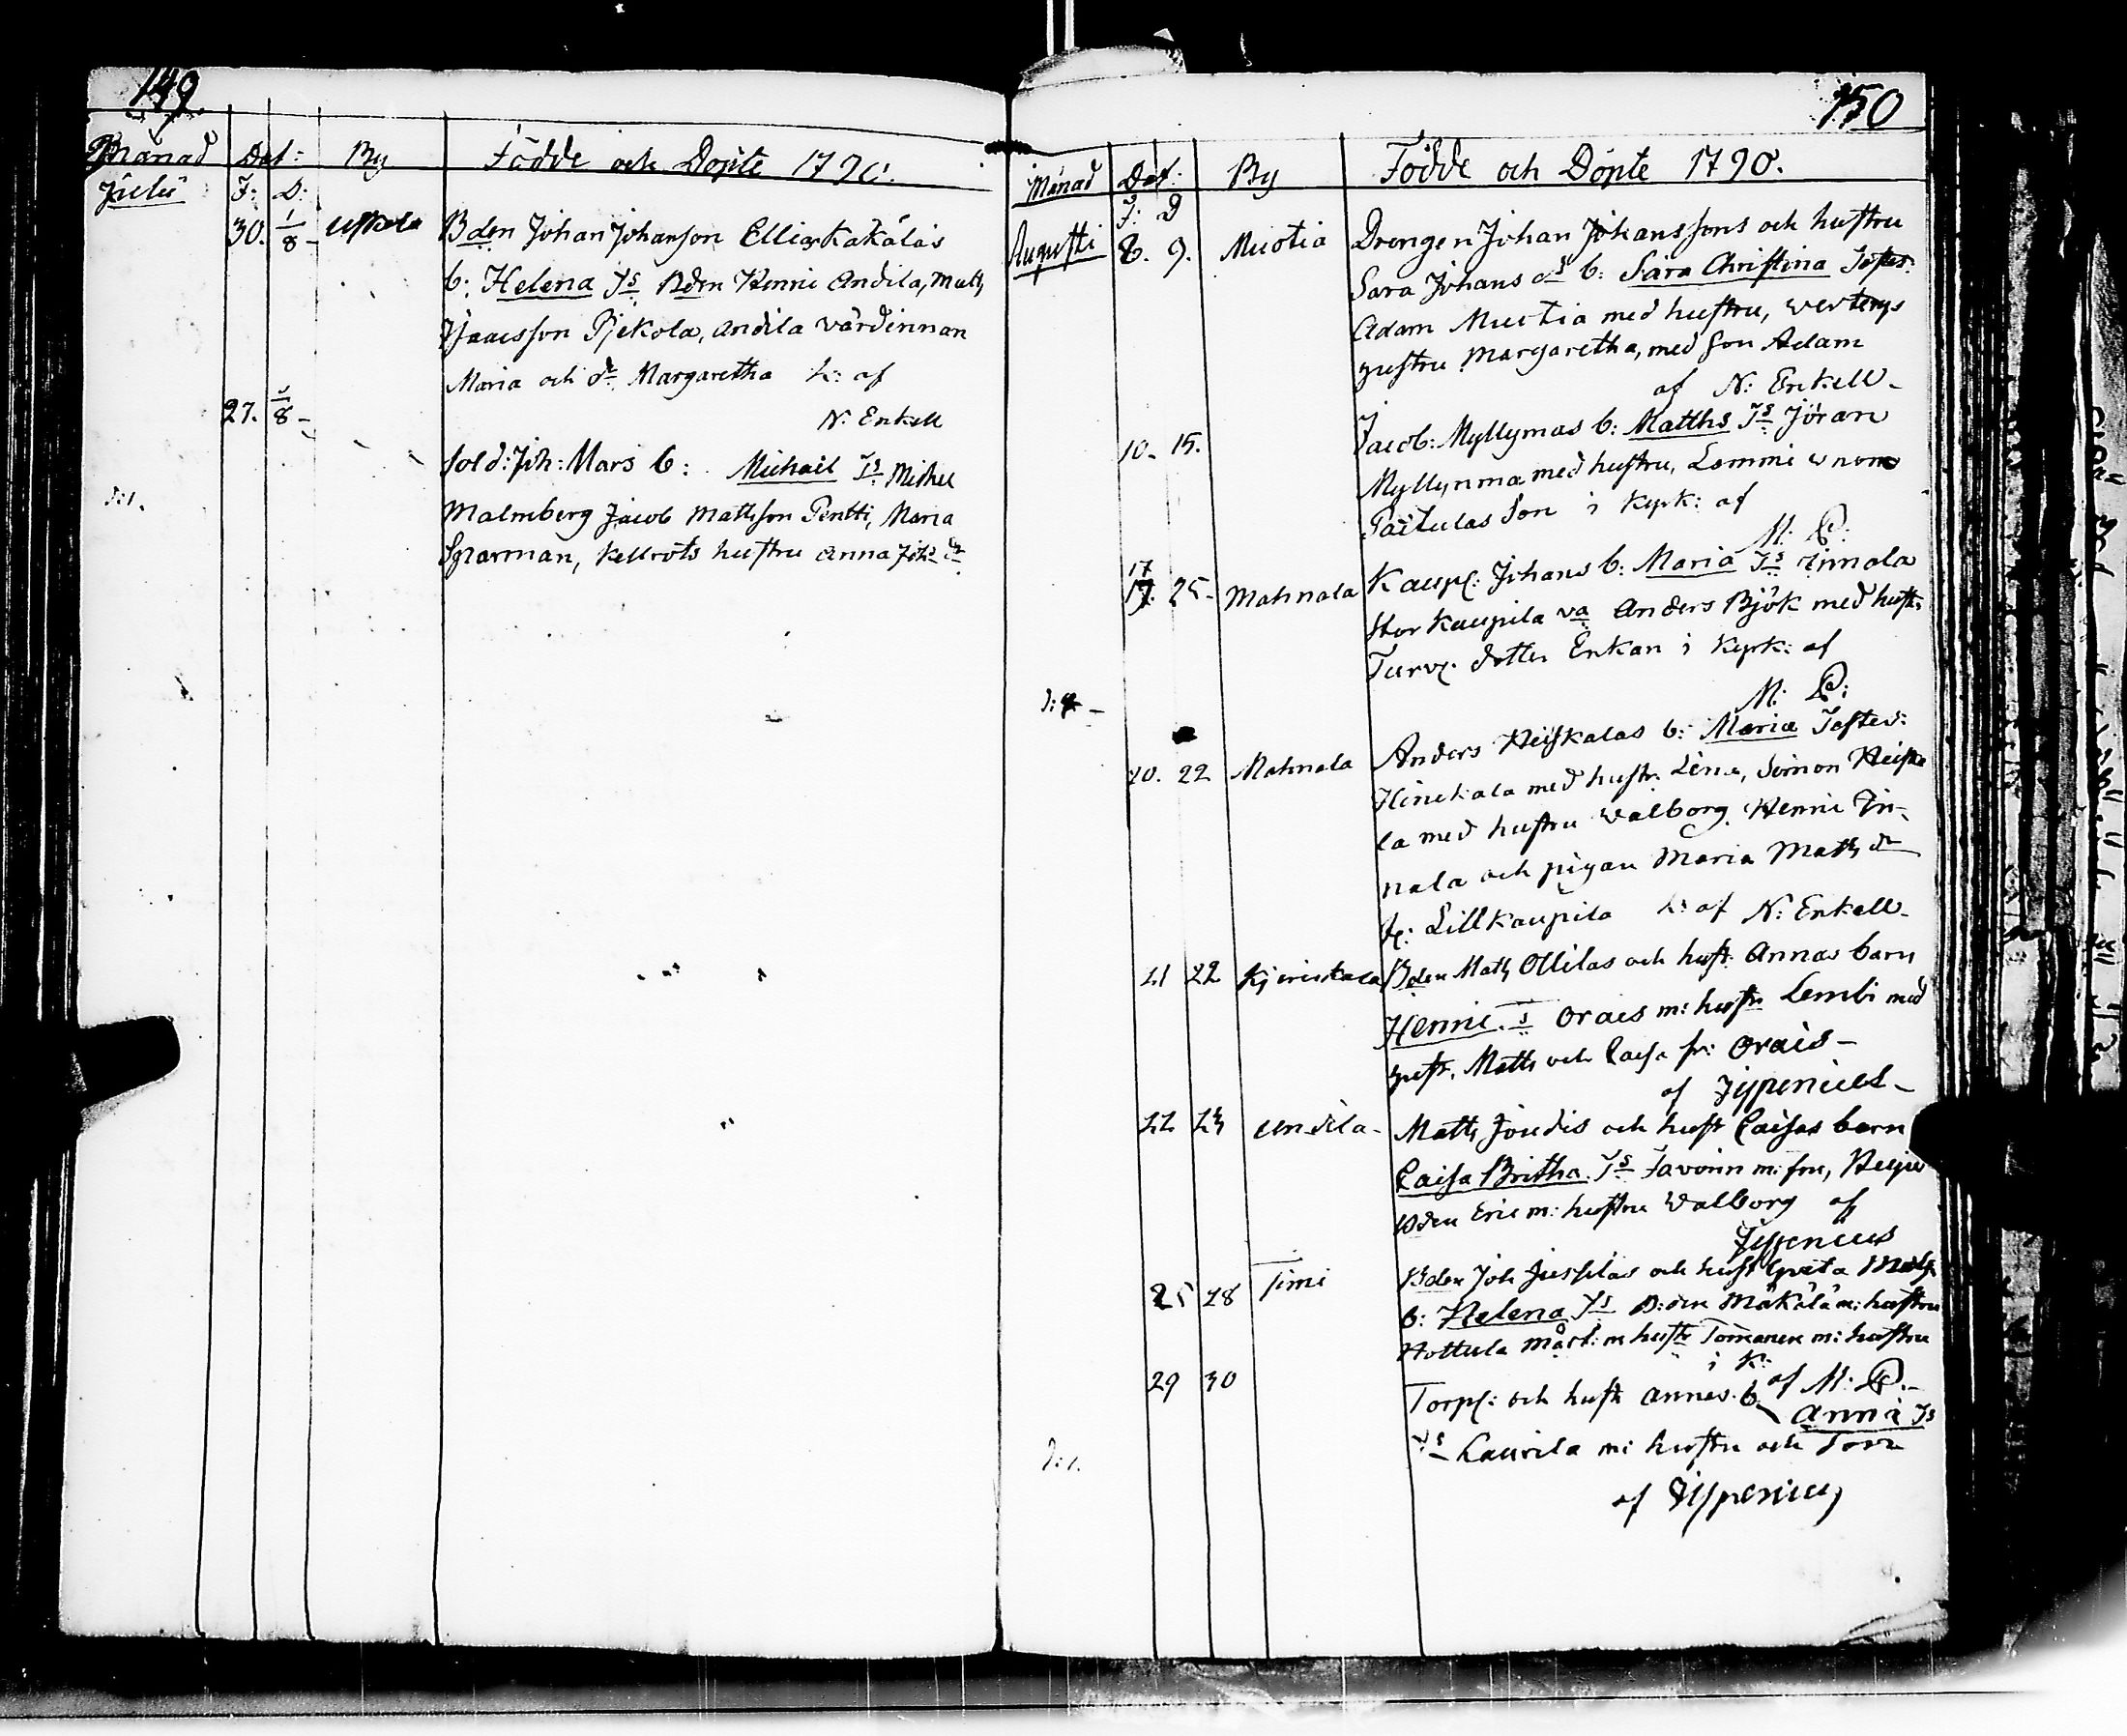 149.
Månad Dat: By Födde och Döpte 1790.
Julii F: D:
30. 1/8 - Uskela Bden Johan Johansson Ellig Kakäläs
b: Helena Ts Bden Henric Andila, Matts
Isaacsson Pjekola, Andila värdinnan
Maria och dr Margaretha h: af
N: Enkell
27. 1/8 - Sold: Joh: Mars b: Michail Ts Michel
Malmberg Jacob Mattsson Pentti, Maria
Sparman, Kellrots hustru Anna Joh: dr
150
Månad Dat: By Födde och Döpte 1790.
F: D
Augusti 8. 9. Muotia Drengen Johan Johanssons och hustru
Sara Johans dr b: Sara Christina Testes:
Adam Muotia med hustru,
hustru Margaretha, med son Adam
af N: Enkell -
10. 15. Jacob: Myllymas b: Matths Ts Jöran
Myllynma med hustru, Lammi
Paitulas Son i Kyrk: af
M: P:
17
17. 25. Mahnala Kaup: Johans b: Maria Ts Jimala
Stor Kaupila va Anders Björk med hust:
dotter Enkan i Kyrk: af
M: P:
20. 22 Mahnala Anders Heiskalas b: Maria Testes:
Hinckala med hustr. Lena, Simon Heiska
la med hustru Walborg Henric Jin-
nala och pigan Maria Matts dr
fr: Lill Kaupila h: af N: Enkell -
21 22 Bden Matts Ollilas och hust: Annas barn
Henric. Ts Orais m: hustr Lembi med
hustr. Matts och Caisa fr: Orais -
af Jypenius -
22 24 Andila - Matts Joudis och hust Caisas barn
Caisa Britha. Ts Tavoin m: son,
Bden Eric m: hustru Walborg af
Jypenius
25 28 Timi Bden Joh Jussilas och hust Greta Matts
b: Helena Ts B:den Mäkälä m: hustru
Hottula Mårt: m hustr Tomanen m: hustru
i K:
af M: P: -
29 30 Torp: och hustr Annas b. Anna Ts
Ts Laurila m: hustru och
af Jypenius